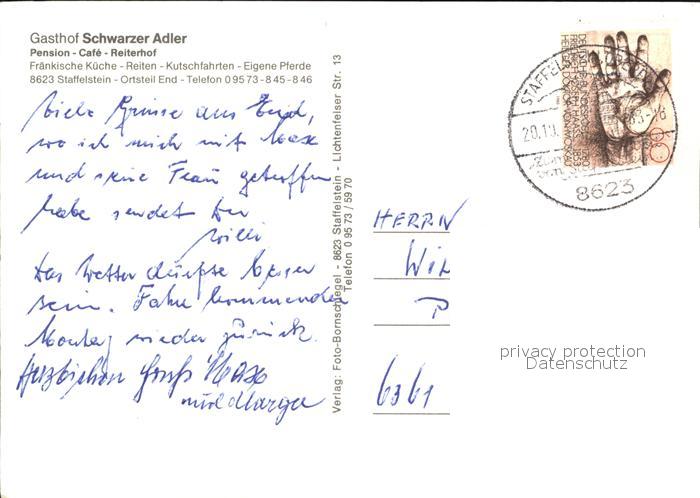 Gasthof Schwarzer Adler
Pension - Café - Reiterhof
Fränkische Küche - Reiten - Kutschfahrten - Eigene Pferde
8623 Staffelstein - Ortsteil End - Telefon 09573-845-846
Viele Grüsse aus End,
wo ich mich mit Max
und seine Frau getroffen
habe sendet Dir
Willi
Das Wetter dürfte besser
sein. Fahre kommenden
Montag wieder zurück.
Herzlichen Gruß Max
und Marga
Verlag: Foto-Bornschlegel - 8623 Staffelstein - Lichtenfelser Str. 13
Telefon 09573/5970
STAFFELSTEIN
20.10.
8623
80
HERRN
Wil
P
6361
privacy protection
Datenschutz